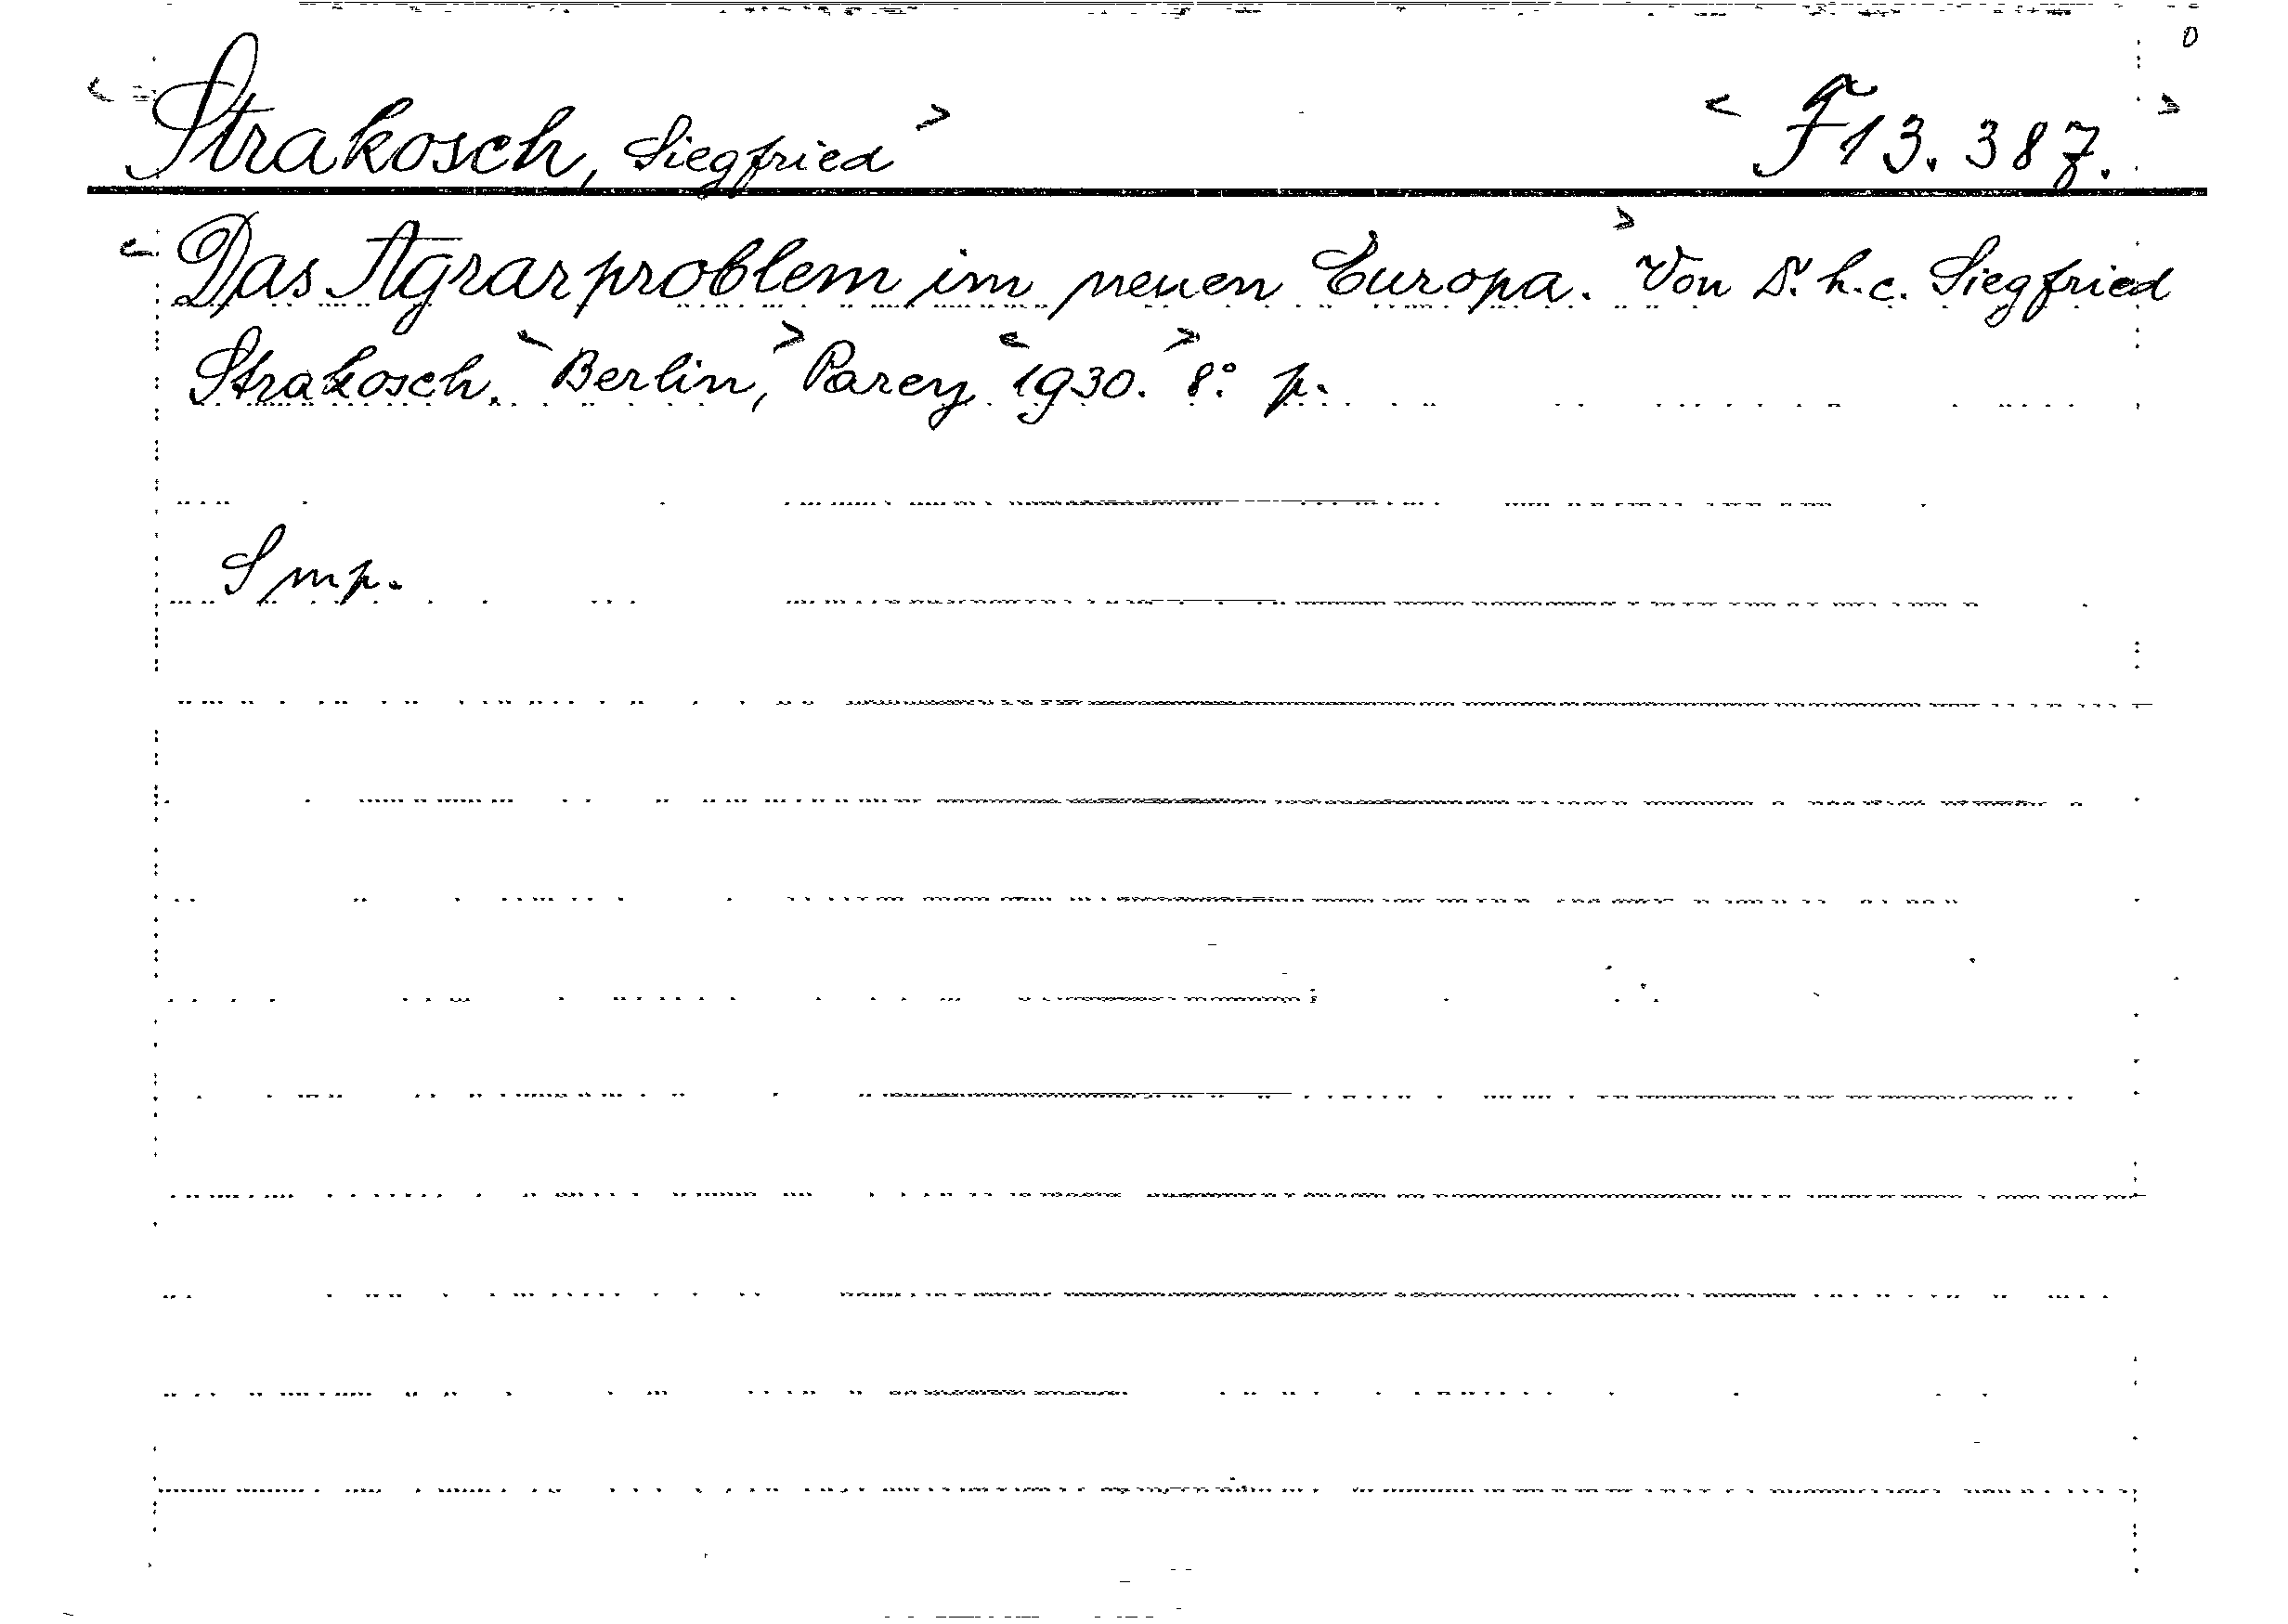 < Strakosch, Siegfried > < F 13.387. >
< Das Agrarproblem im neuen Europa. > Von Dr. h.c. Siegfried
Strakosch. < Berlin, > Parey < 1930. > 8° p.